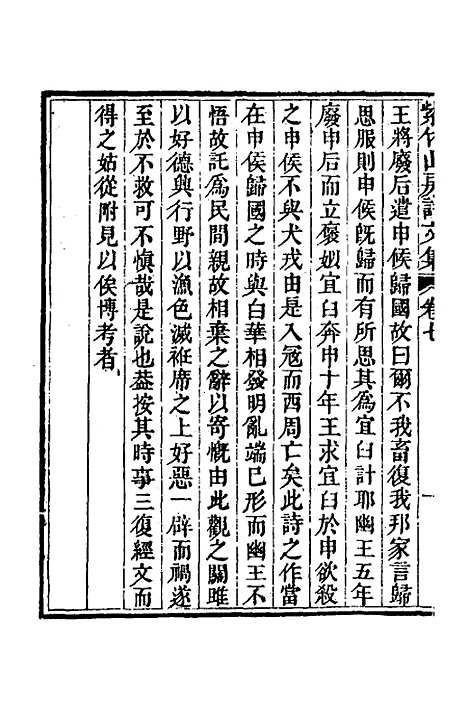 紫竹山房詩文集 卷七
王將廢后遣申侯歸國故曰爾不我畜復我邦家言歸
思服則申侯旣歸而有所思其爲宜臼計耶幽王五年
廢申后而立褒姒宜臼奔申十年王求宜臼於申欲殺
之申侯不與犬戎由是入寇而西周亡矣此詩之作當
在申侯歸國之時與白華相發明亂端已形而幽王不
悟故託爲民間親故相棄之辭以寄慨由此觀之關雎
以好德興行野以漁色滅袵席之上好惡一辟而禍遂
至於不救可不愼哉是說也葢按其時事三復經文而
得之姑從附見以俟博考者